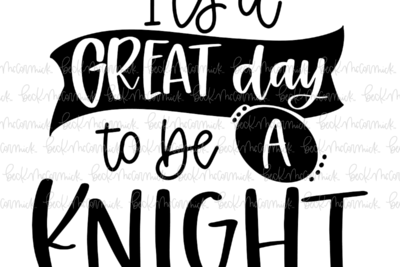 It's a
GREAT day
to be A
KNIGHT